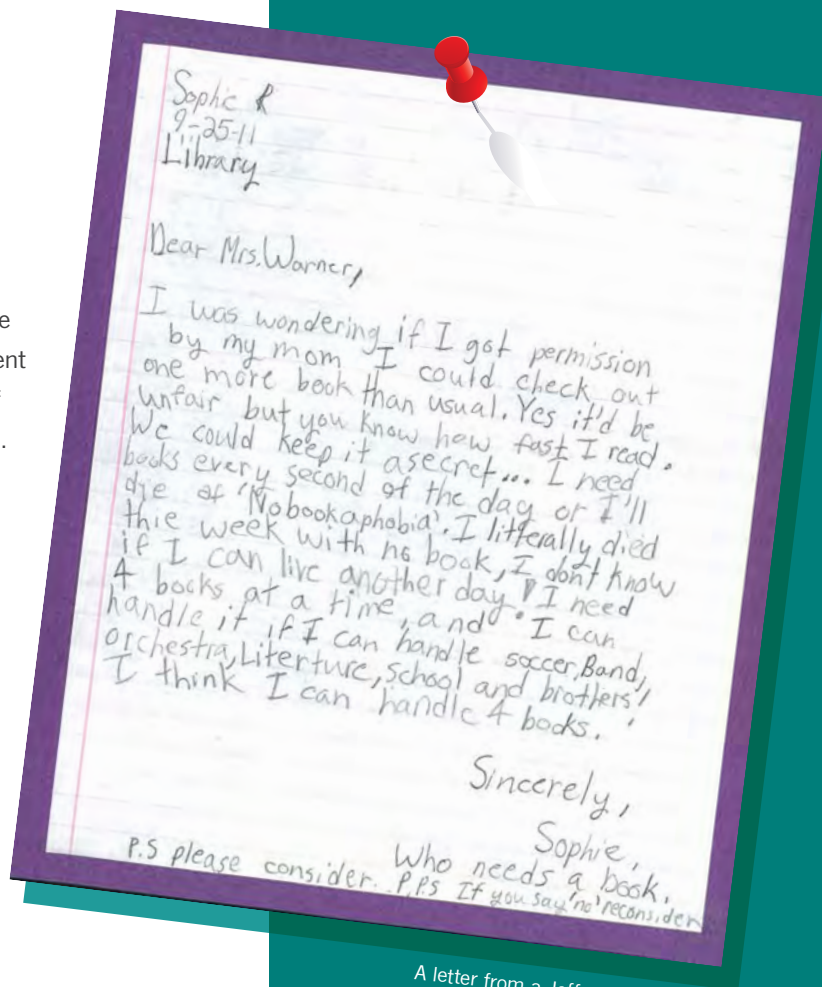 Sophie R
9-25-11
Library
Dear Mrs. Warner,
I was wondering if I got permission
by my mom I could check out
one more book than usual. Yes it'd be
unfair but you know how fast I read.
We could keep it a secret... I need
books every second of the day or I'll
die of 'Nobookaphobia'. I litterally died
this week with no book, I don't know
if I can live another day! I need
4 books at a time, and I can
handle it if I can handle soccer, Band,
orchestra, Literture, School and brothers,
I think I can handle 4 books.
Sincerely,
Sophie,
Who needs a book.
P.S please consider. P.P.S If you say 'no' reconsider
e
ent
.
A letter from a Jeff